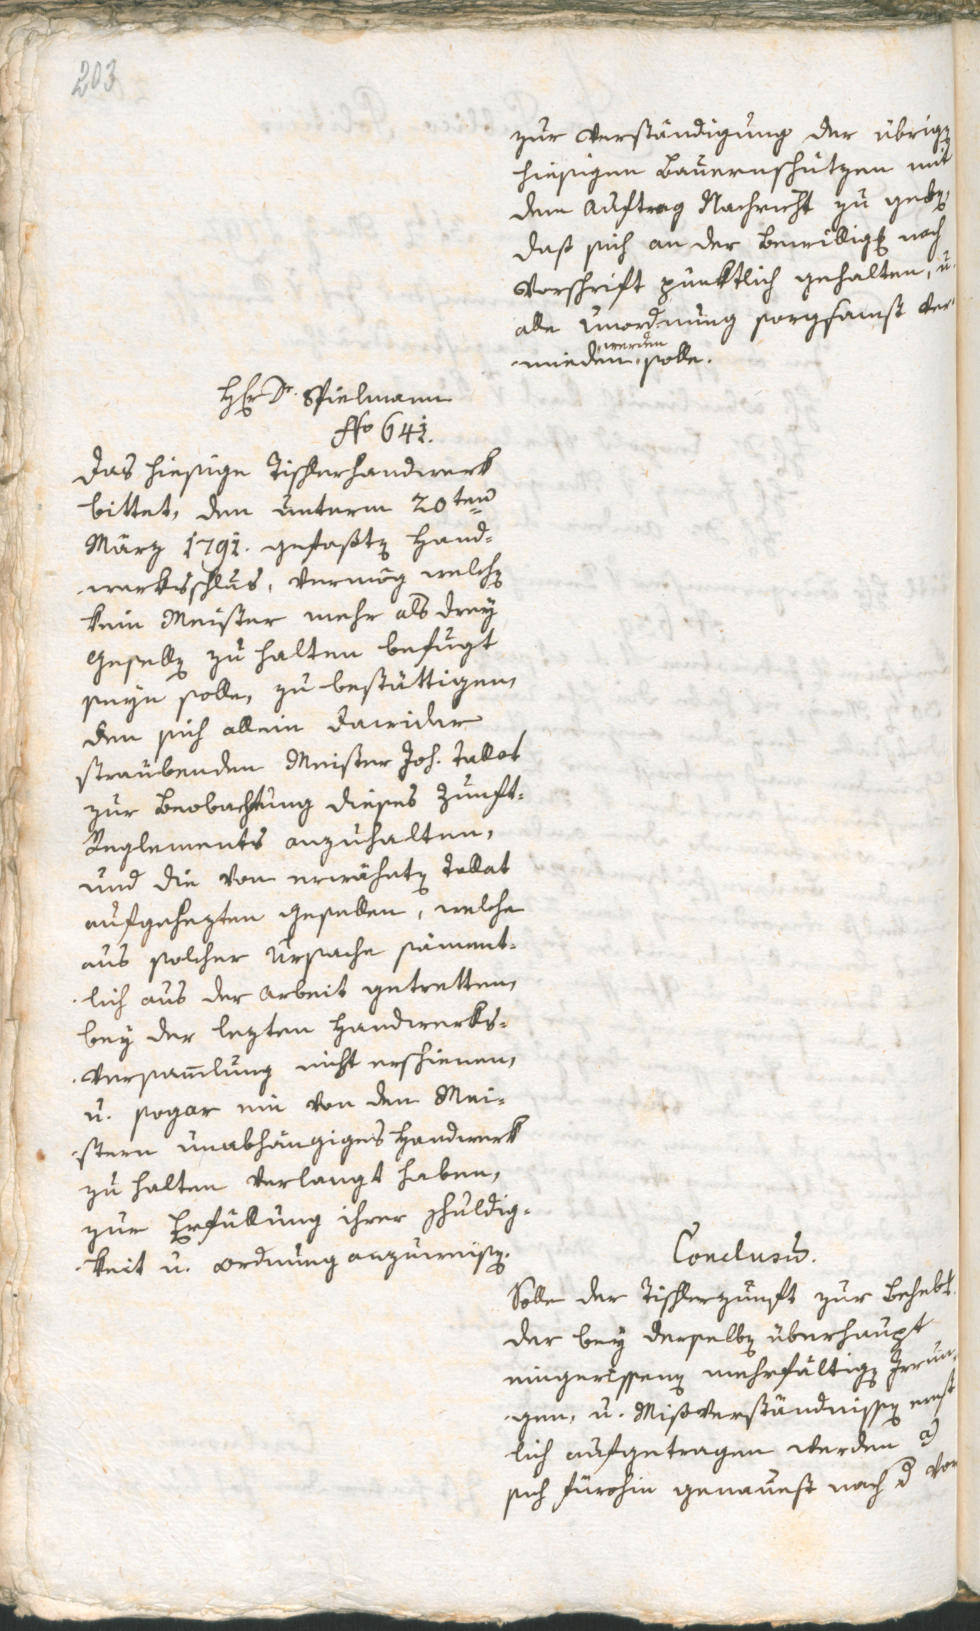 203
zur Verständigung der übrigẽ
hiesigen Bauernschützen mit
dem Auftrag Nachricht zu gebẽ,
daß sich an der Bewilligg nach
Vorschrift pünktlich gehalten, u.
alle Unordnung sorgsamst ver-
mieden werden solle.
HEr Dr. Spielmann
No 641.
Das hiesige Tischlerhandwerk
bittet, den unterm 20ten
März 1791. gefaßtẽ Hand-
werksschlus, vermög welchẽ
kein Meister mehr als drey
Gesellẽ zu halten befugt
seyn solle, zu bestättigen,
den sich allein dawider
sträubenden Meister Joh. Tallat
zur Beobachtung dieses Zunft-
Reglements anzuhalten,
und die von erwähntẽ Tallat
aufgehezten Gesellen, welche
aus solcher Ursache säment-
lich aus der Arbeit getretten,
bey der lezten Handwerks-
versam̄lung nicht erschienen,
u. sogar ein von den Mei-
stern unabhängiges Handwerk
zu halten verlangt haben,
zur Erfüllung ihrer Schuldig-
keit u. Ordnung anzuweisẽ.
Conclusũ.
Solle der Tischlerzunft zur Behebg.
der bey derselbẽ überhaupt
eingerissenẽ mehrfältigẽ Irrun-
gen, u. Mißverständnissẽ ernst
lich aufgetragen werden
sich fürohin genauest nach d Vor